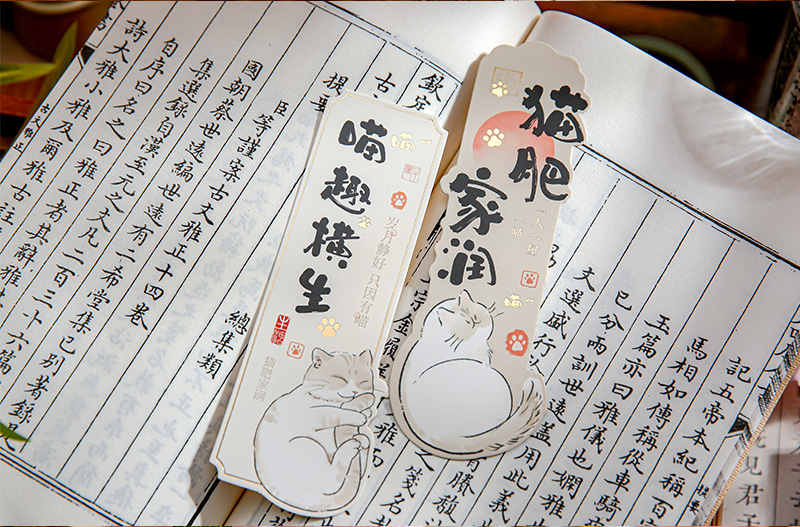 猫肥家润
喵趣横生
岁月静好 只因有喵
猫肥家润
記五帝本紀稱百
馬相如傳稱從車騎
玉篇亦曰雅儀也嫻雅
已分兩訓世遠蓋用此義
文選盛行以
欽定
古
提要
總集類
臣等謹案古文雅正十四卷
國朝蔡世遠編世遠有二希堂集已別著錄
集選錄自漢至元之文凡二百三十六篇
自序曰名之曰雅正者其辭雅
詩大雅小雅及爾雅古註
古文雅正